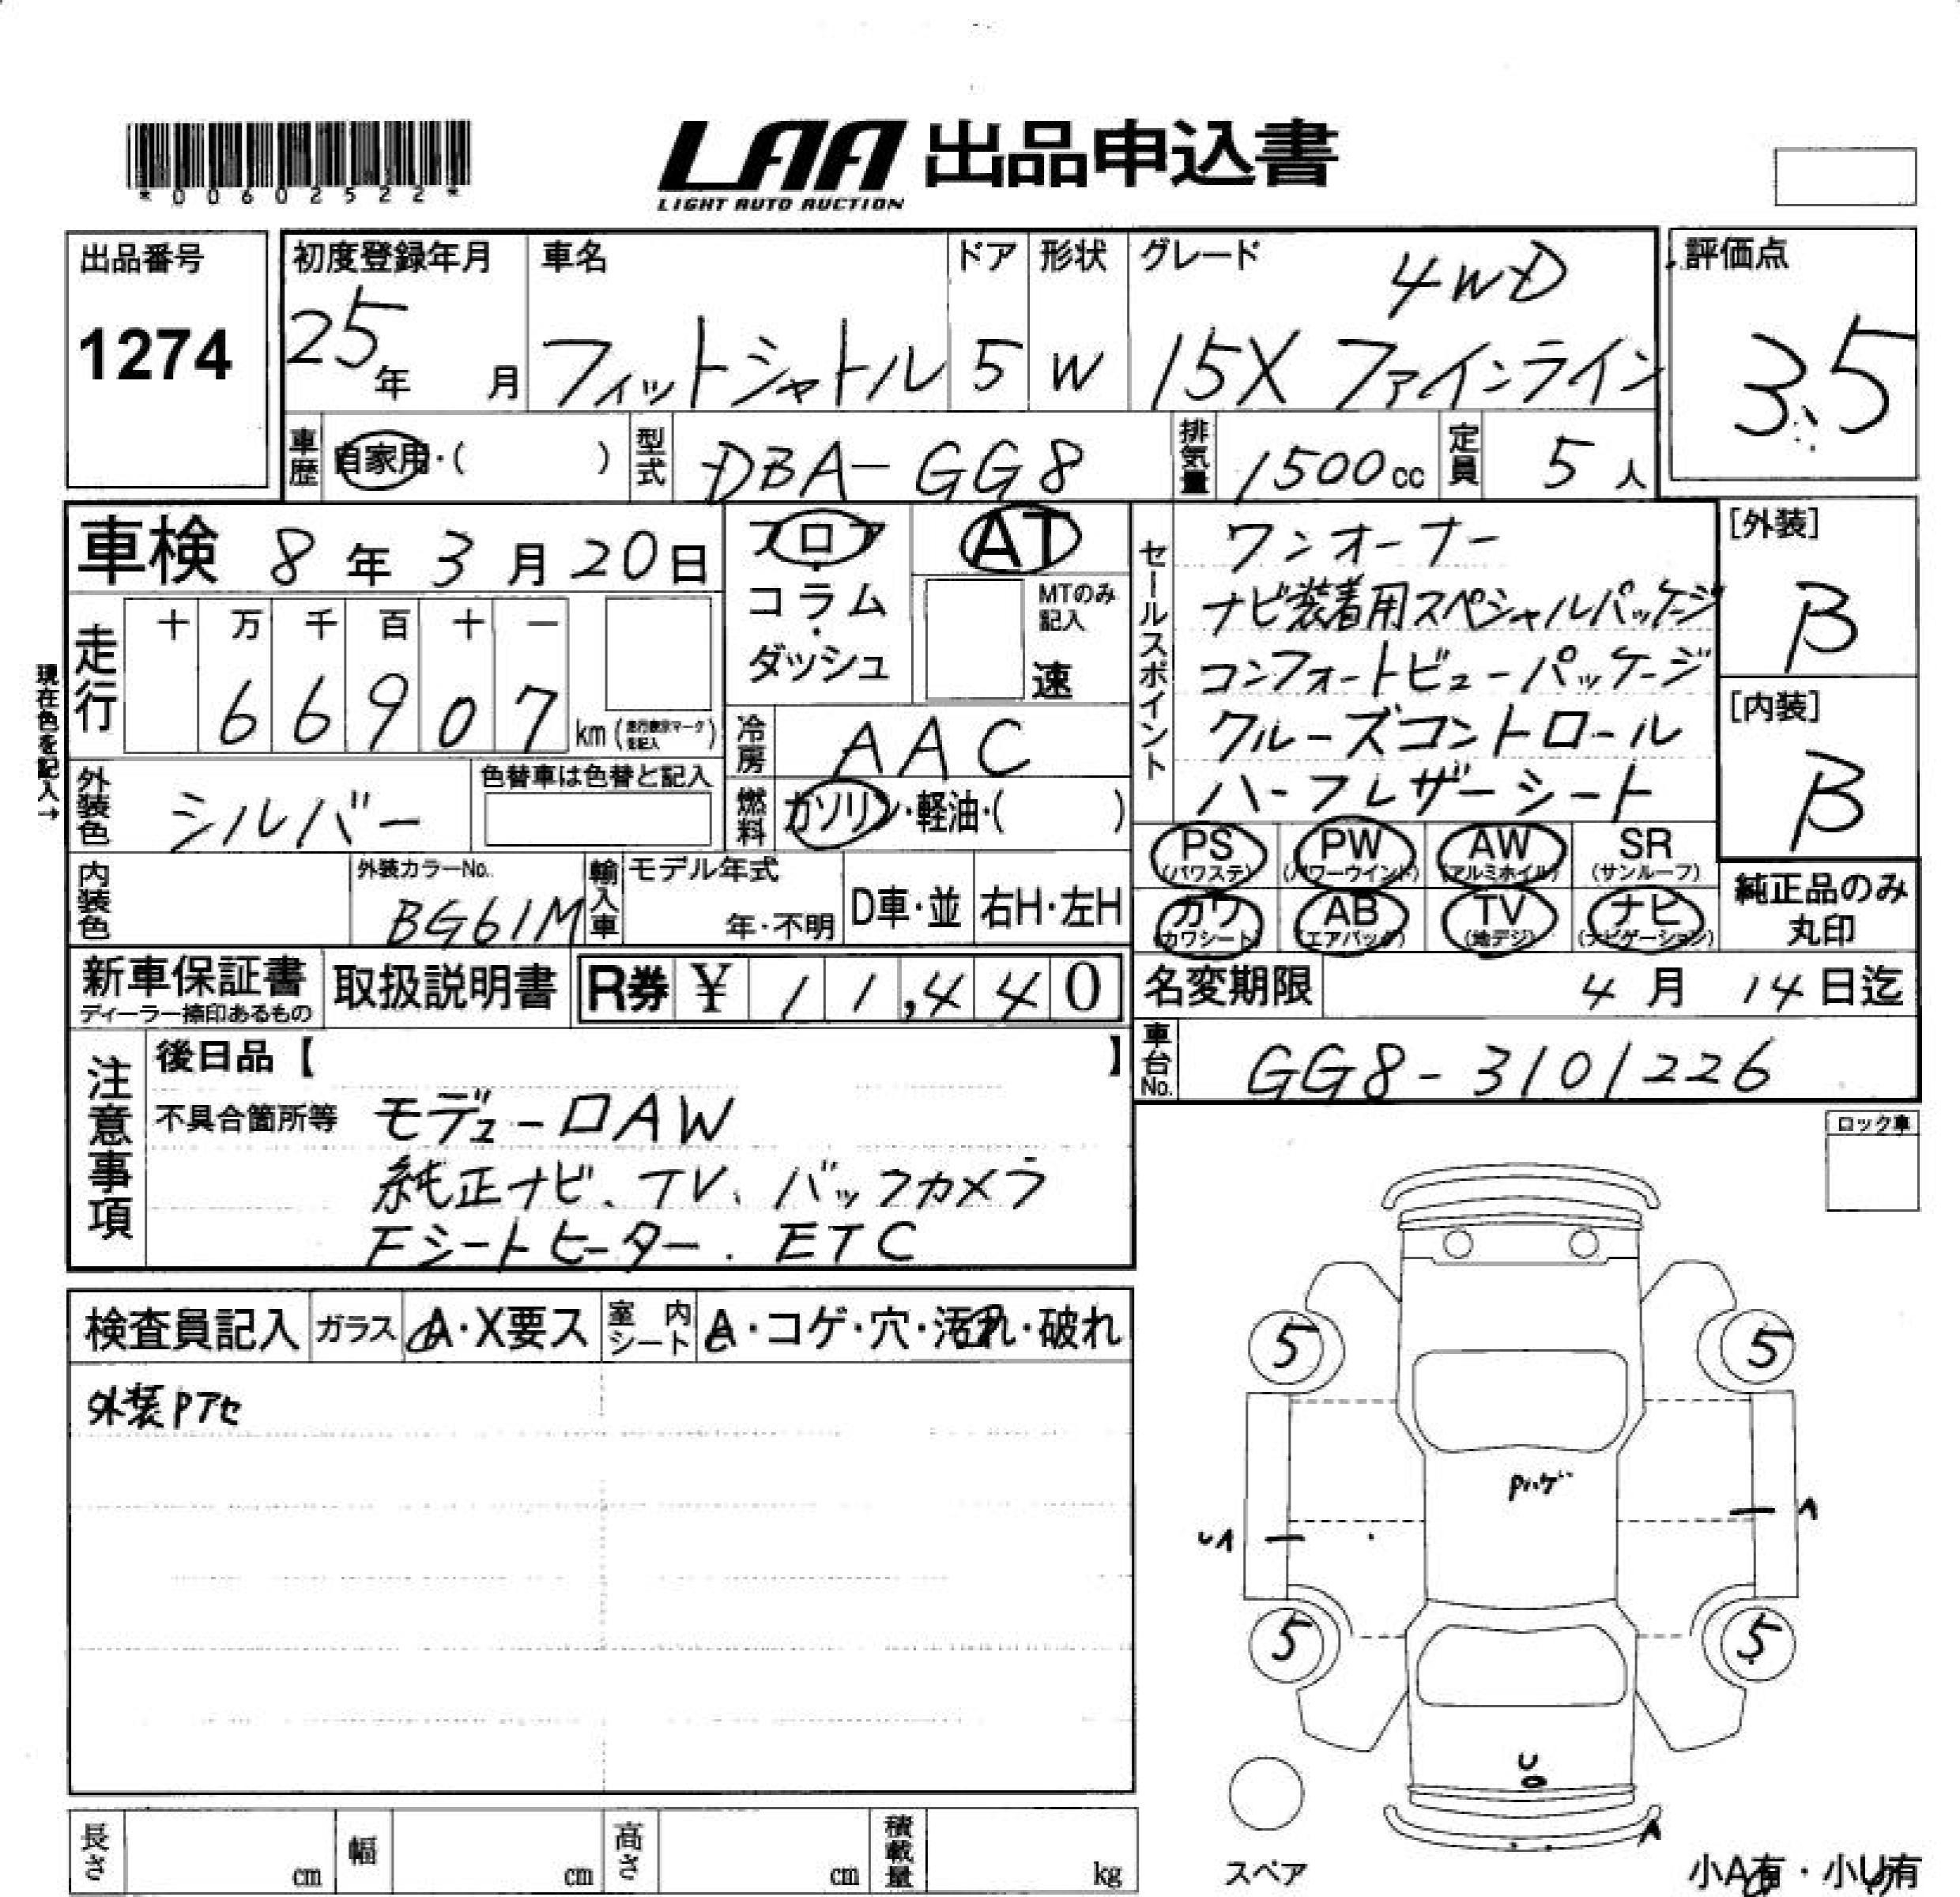 *00602522*
LAA 出品申込書
LIGHT AUTO AUCTION
出品番号
1274
初度登録年月
25年 月
車名
フィットシャトル
ドア
5
形状
W
グレード
4WD
15X ファインライン
評価点
3.5
車歴
自家用・( )
型式
DBA-GG8
排気量
1500cc
定員
5人
車検 8年3月20日
現在色を記入→
走行
十 万 千 百 十 一
6 6 9 0 7 km
フロア・コラム・ダッシュ
AT
MTのみ記入
速
冷房
AAC
燃料
ガソリン・軽油・( )
外装色
シルバー
色替車は色替と記入
内装色
外装カラーNo.
BG61M
輸入車
モデル年式
年・不明
D車・並
右H・左H
セールスポイント
ワンオーナー
ナビ装着用スペシャルパッケージ
コンフォートビューパッケージ
クルーズコントロール
ハーフレザーシート
[外装]
B
[内装]
B
PS (パワステ)
PW (パワーウインド)
AW (アルミホイル)
SR (サンルーフ)
カワ (カワシート)
AB (エアバック)
TV (地デジ)
ナビ (ナビゲーション)
純正品のみ丸印
新車保証書
ディーラー捺印あるもの
取扱説明書
R券 ¥ 11,440
名変期限 4月14日迄
車台No.
GG8-3101226
注意事項
後日品【 】
不具合箇所等
モデューロAW
純正ナビ、TV、バックカメラ
Fシートヒーター. ETC
ロック車
検査員記入
ガラス
A・X要ス
室内シート
A・コゲ・穴・汚れ・破れ
外装Pアセ
5
5
Pハゲ
UA
A
5
5
U
A
スペア
小A有・小U有
長さ cm
幅 cm
高さ cm
積載量 kg